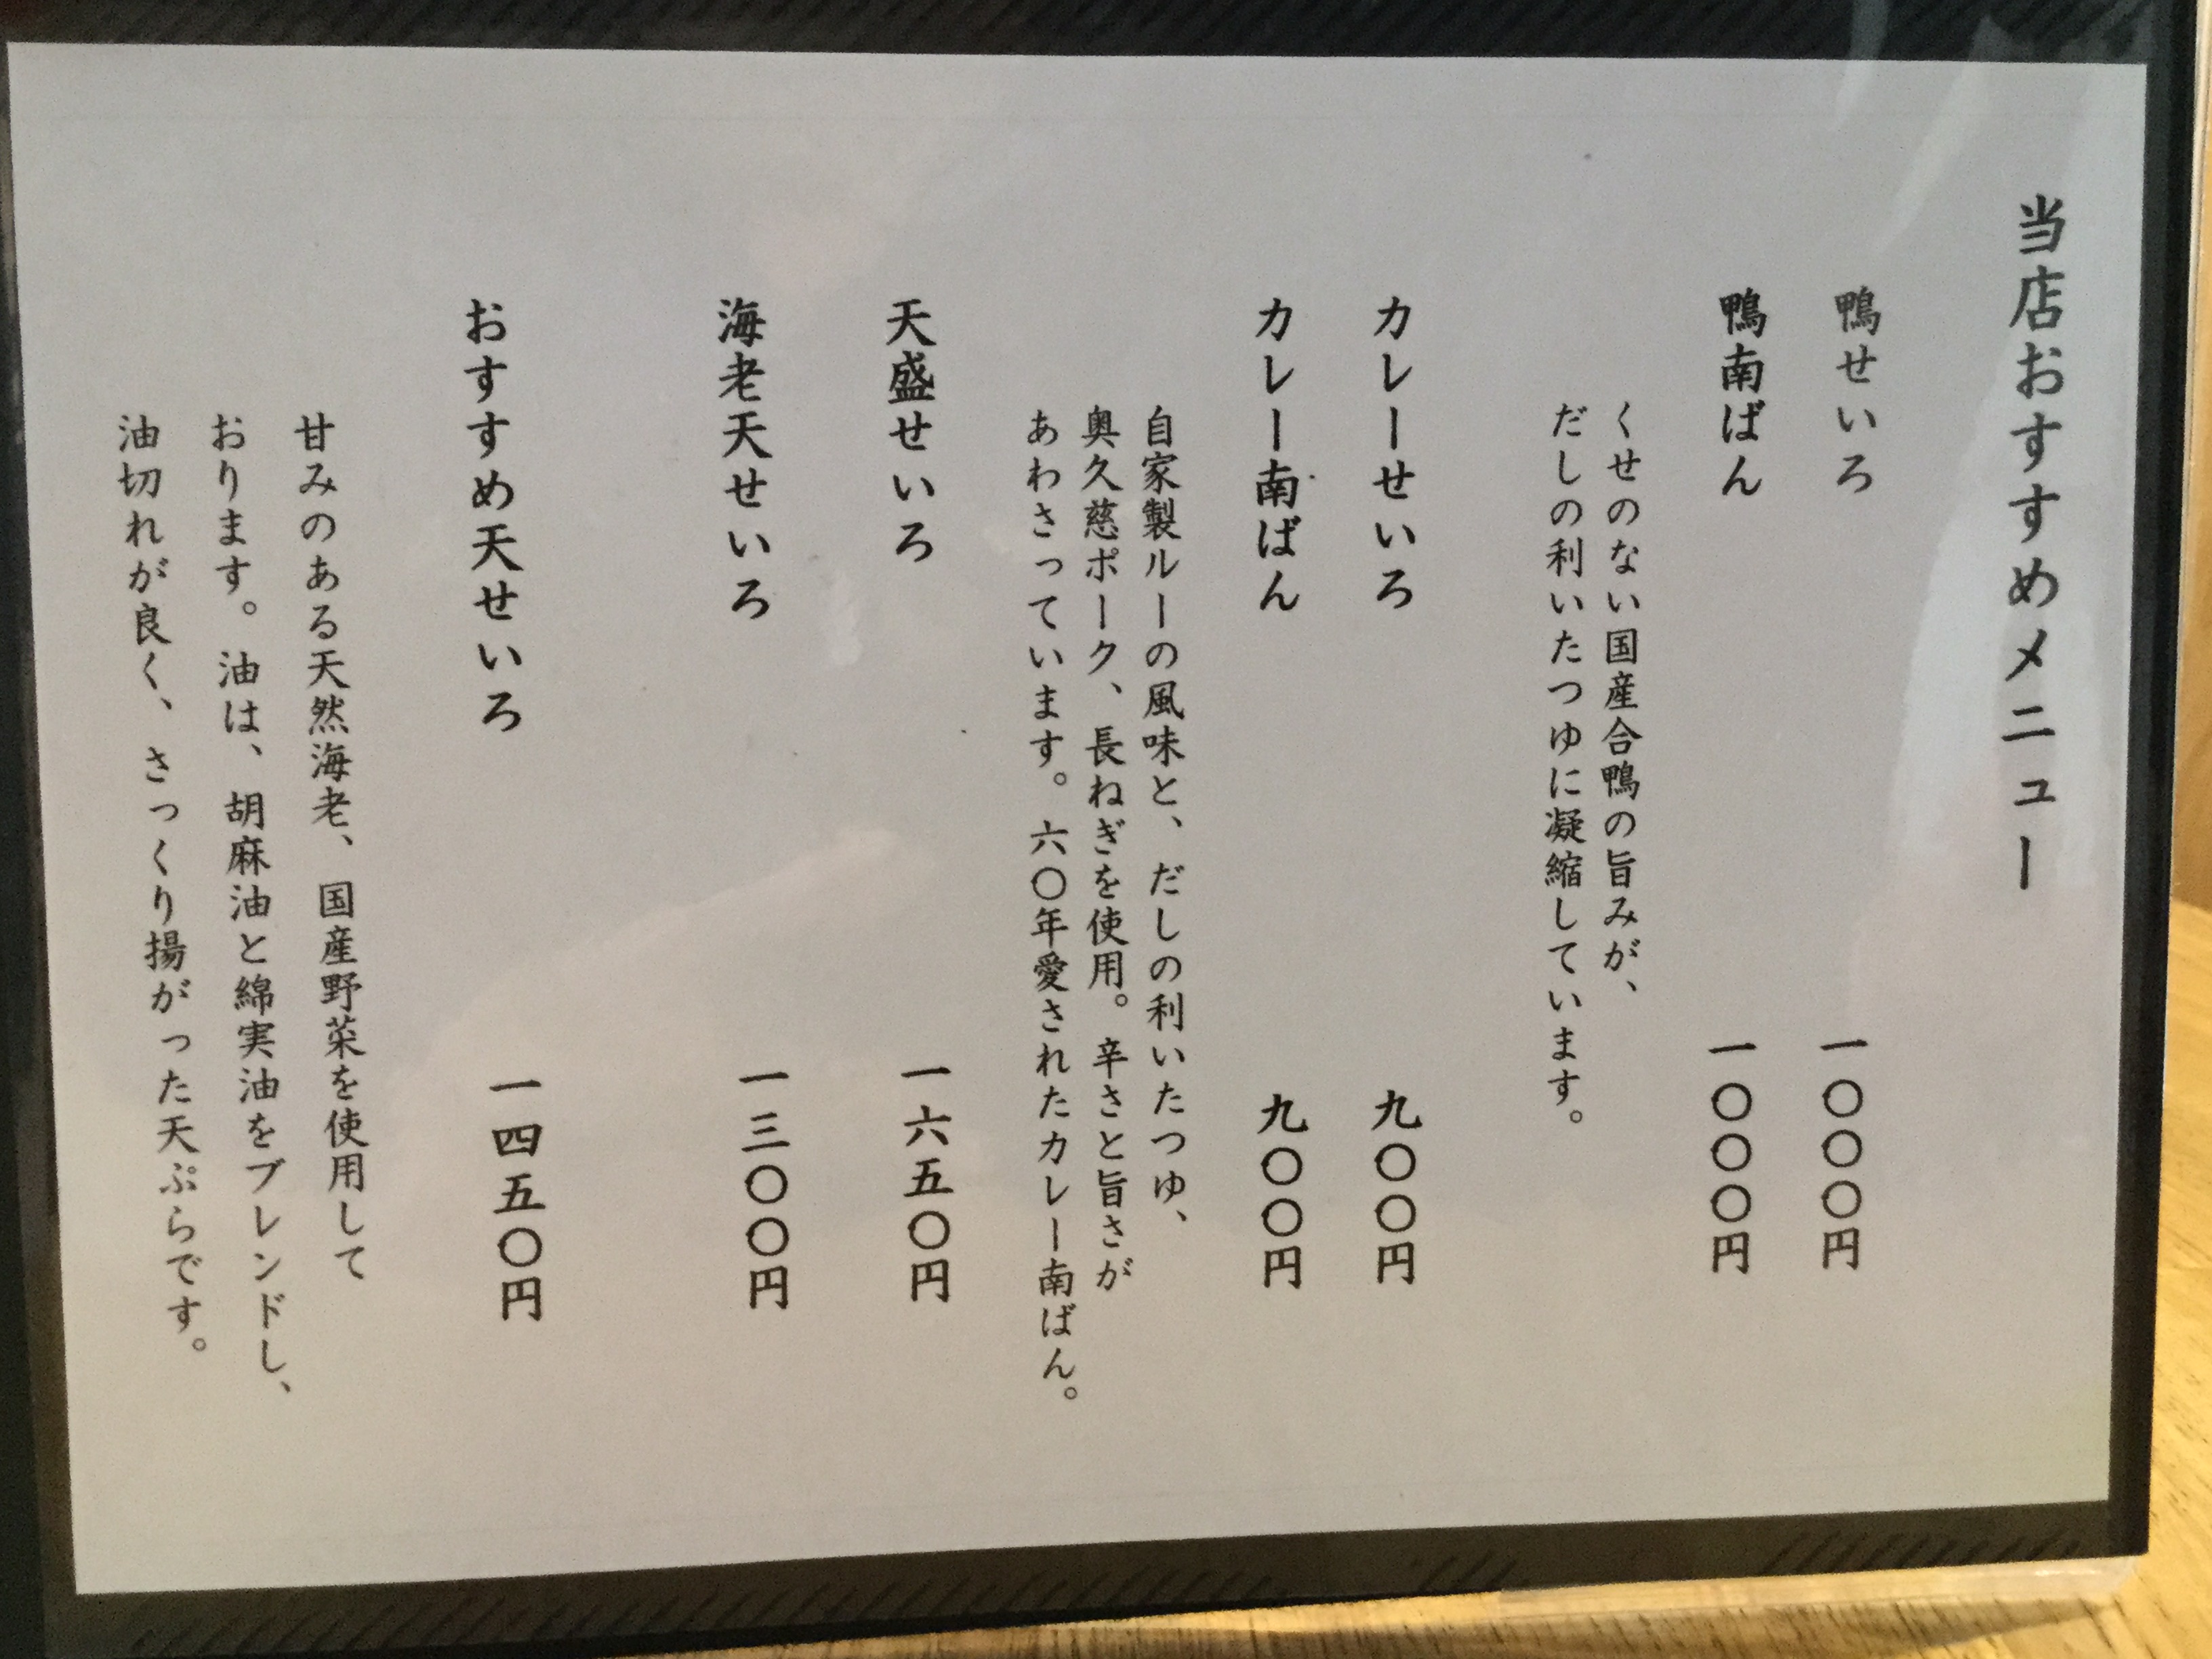 当店おすすめメニュー
鴨せいろ 一〇〇〇円
鴨南ばん 一〇〇〇円
くせのない国産合鴨の旨みが、
だしの利いたつゆに凝縮しています。
カレーせいろ 九〇〇円
カレー南ばん 九〇〇円
自家製ルーの風味と、だしの利いたつゆ、
奥久慈ポーク、長ねぎを使用。辛さと旨さが
あわさっています。六〇年愛されたカレー南ばん。
天盛せいろ 一六五〇円
海老天せいろ 一三〇〇円
おすすめ天せいろ 一四五〇円
甘みのある天然海老、国産野菜を使用して
おります。油は、胡麻油と綿実油をブレンドし、
油切れが良く、さっくり揚がった天ぷらです。